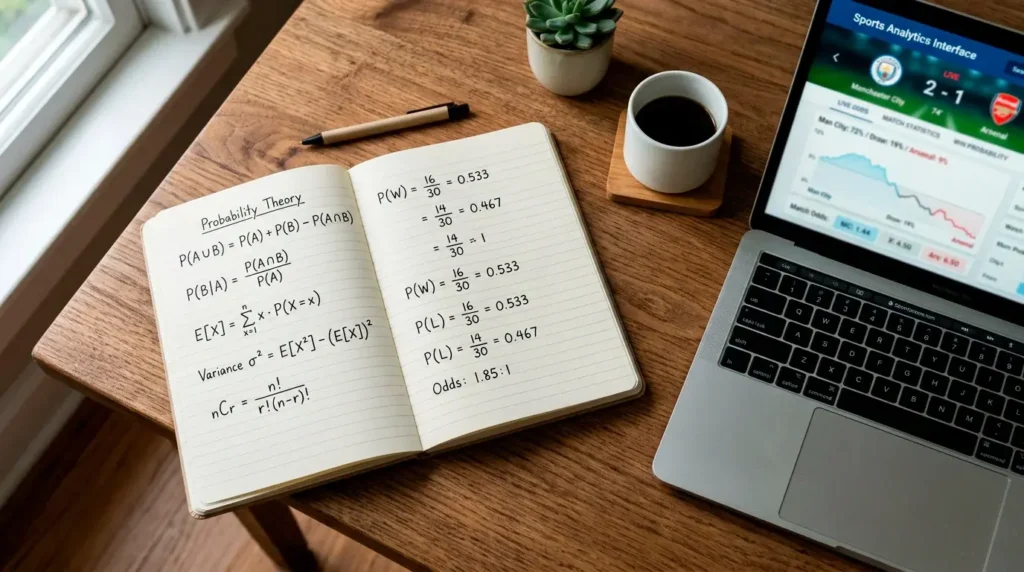 Probability Theory
P(A∪B) = P(A) + P(B) - P(A∩B)
P(B|A) = P(A∩B) / P(A)
E[X] = n Σ x=1 x · P(X=x)
Variance σ² = E[X²] - (E[X])²
nCr = n! / r!(n-r)!
P(W) = 16/30 = 0.533
= 14/30 = 0.467
= 14/30 = 1
P(W) = 16/30 = 0.533
P(L) = 16/30 = 0.533
P(L) = 14/30 = 0.467
Odds: 1.85:1
Sports Analytics Interface
LIVE
2 - 1
Manchester City
74'
Arsenal
LIVE ODDS
MATCH STATISTICS
WIN PROBABILITY
Man City: 72% / Draw: 19% / Arsenal: 9%
Man City
Draw: 19%
Arsenal
Match Odds:
MC: 1.44
X: 4.50
Ars: 6.50